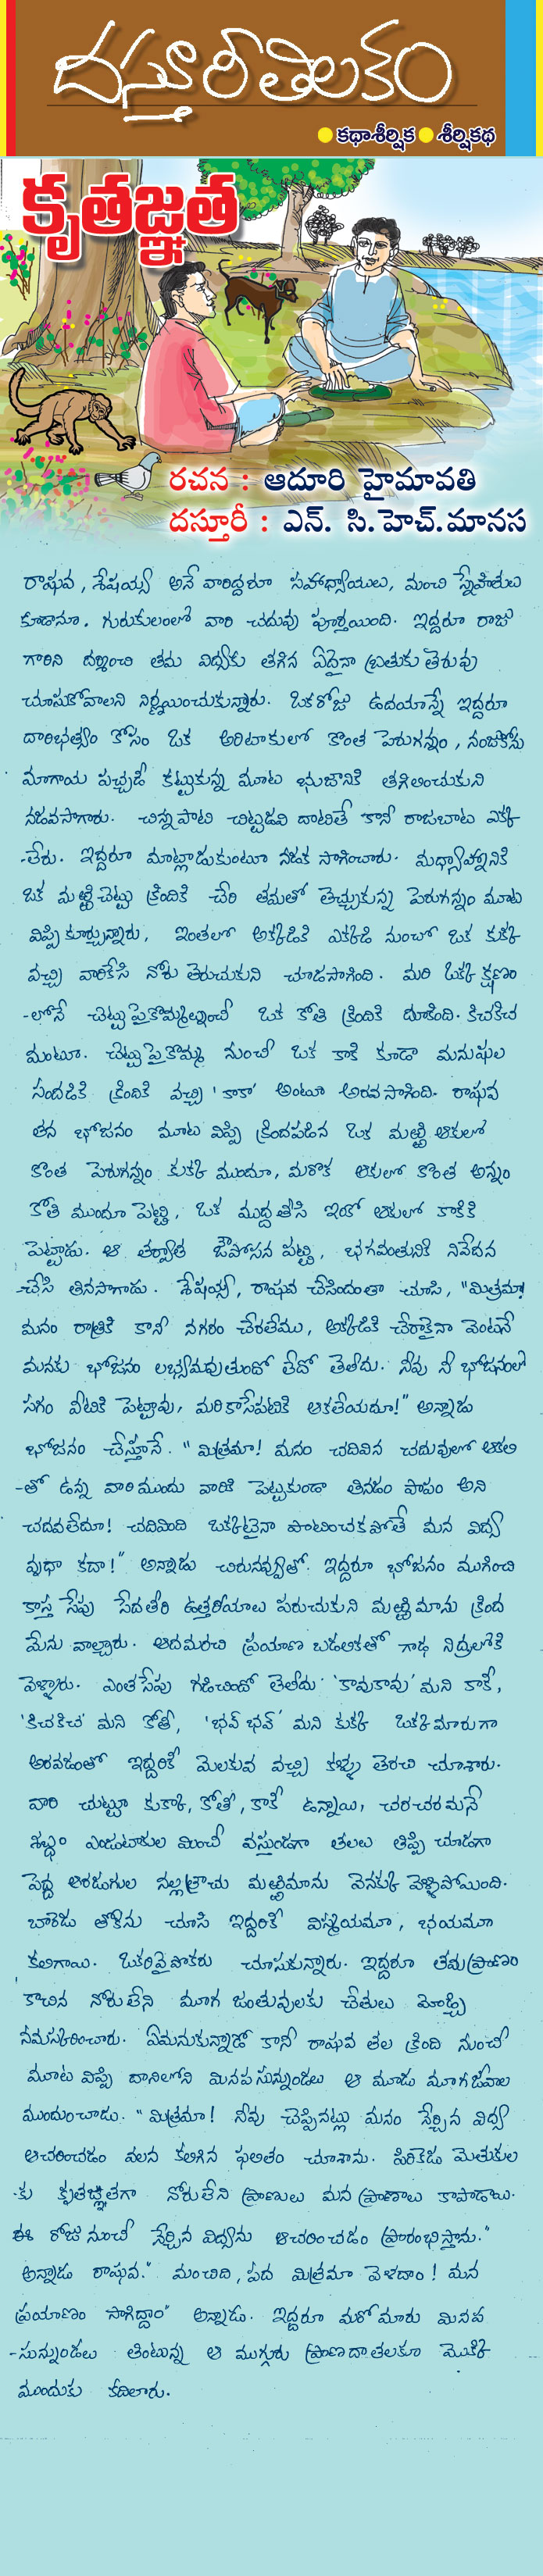 దస్తూరీ తిలకం
కథాశీర్షిక శీర్షికథ
కృతజ్ఞత
రచన : ఆదూరి హైమావతి
దస్తూరీ : ఎన్. సి.హెచ్.మానస
రాఘవ, శేషయ్య అనే వారిద్దరూ సహాధ్యాయులు, మంచి స్నేహితులు
కూడాను. గురుకులంలో వారి చదువు పూర్తయింది. ఇద్దరూ రాజు
గారిని దర్శించి తమ విద్యకు తగిన ఏదైనా బ్రతుకు తెరువు
చూసుకోవాలని నిర్ణయించుకున్నారు. ఒకరోజు ఉదయాన్నే ఇద్దరూ
దారిభత్యం కోసం ఒక అరిటాకులో కొంత పెరుగన్నం, నంజుకోను
మాగాయ పచ్చడీ కట్టుకున్న మూట భుజానికి తగిలించుకుని
నడవసాగారు. చిన్నపాటి చిట్టడవి దాటితే కానీ రాజబాట ఎక్క
-లేరు. ఇద్దరూ మాట్లాడుకుంటూ నడక సాగించారు. మధ్యాహ్నానికి
ఒక మఱ్ఱిచెట్టు క్రిందికి చేరి తమతో తెచ్చుకున్న పెరుగన్నం మూట
విప్పి కూర్చున్నారు, ఇంతలో అక్కడికి ఎక్కడి నుంచో ఒక కుక్క
వచ్చి వారికేసి నోరు తెరుచుకుని చూడసాగింది. మరి ఒక్క క్షణం
-లోనే చెట్టుపైకొమ్మల్నుంచీ ఒక కోతి క్రిందికి దూకింది. కిచకిచ
మంటూ. చెట్టుపైకొమ్మ నుంచి ఒక కాకి కూడా మనుషుల
సందడికి క్రిందికి వచ్చి 'కాకా' అంటూ అరవసాగింది. రాఘవ
తన భోజనం మూట విప్పి క్రిందపడిన ఒక మఱ్ఱి ఆకులో
కొంత పెరుగన్నం కుక్క ముందూ, మరొక ఆకులో కొంత అన్నం
కోతి ముందూ పెట్టి, ఒక ముద్ద తీసి ఇంకో ఆకులో కాకికి
పెట్టాడు. ఆ తర్వాత ఔపోసన పట్టి, భగవంతునికి నివేదన
-చేసి తినసాగాడు. శేషయ్య, రాఘవ చేసిందంతా చూసి, "మిత్రమా!
మనం రాత్రికి కానీ నగరం చేరలేము, అక్కడికి చేరాకైనా వెంటనే
మనకు భోజనం లభ్యమవుతుందో లేదో తెలీదు. నీవు నీ భోజనంలో
సగం వీటికి పెట్టావు, మరి కాసేపటికి ఆకలేయదూ!" అన్నాడు
భోజనం చేస్తూనే. "మిత్రమా! మనం చదివిన చదువులో ఆకలి
-తో ఉన్న వారిముందు వారికి పెట్టకుండా తినడం పాపం అని
చదవలేదూ! చదివింది ఒక్కటైనా పాటించకపోతే మన విద్య
వృధా కదా!" అన్నాడు చిరునవ్వుతో. ఇద్దరూ భోజనం ముగించి
కాస్త సేపు సేదతీరి ఉత్తరీయాలు పరుచుకుని మఱ్ఱిమాను క్రింద
మేను వాల్చారు. ఆదమరచి ప్రయాణ బడలికతో గాఢ నిద్రలోకి
వెళ్ళారు. ఎంతసేపు గడిచిందో తెలీదు 'కావుకావు' మని కాకీ,
'కిచకిచ' మని కోతీ, 'భవ్ భవ్' మని కుక్క ఒక్కమారుగా
అరవడంతో ఇద్దరికీ మెలకువ వచ్చి కళ్ళు తెరచి చూశారు.
వారి చుట్టూ కుక్క, కోతి, కాకీ ఉన్నాయి, చరచరమనే
శబ్ధం ఎండుటాకుల మించీ వస్తుండగా తలలు త్రిప్పి చూడగా
పెద్ద ఆరడుగుల నల్లత్రాచు మఱ్ఱిమాను వెనక్కు వెళ్ళిపోయింది.
బారెడు తోకను చూసి ఇద్దరికీ విస్మయమూ, భయమూ
కలిగాయి. ఒకరివైపొకరు చూసుకున్నారు. ఇద్దరూ తమప్రాణం
కాచిన నోరులేని మూగ జంతువులకు చేతులు మోడ్చి
నమస్కరించారు. ఏమనుకున్నాడో కానీ రాఘవ తల క్రింది నుంచీ
మూట విప్పి దానిలోని మినపసున్నుండలు ఆ మూడు మూగజీవాల
ముందుంచాడు. "మిత్రమా! నీవు చెప్పినట్లు మనం నేర్చిన విద్య
ఆచరించడం వలన కలిగిన ఫలితం చూశాను. పిరికెడు మెతుకుల
-కు కృతజ్ఞతగా నోరులేని ప్రాణులు మన ప్రాణాలు కాపాడాయి.
ఈ రోజునుంచీ నేర్చిన విద్యను ఆచరించడం ప్రారంభిస్తాను."
అన్నాడు రాఘవ." మంచిది, పద మిత్రమా వెళదాం! మన
ప్రయాణం సాగిద్దాం" అన్నాడు. ఇద్దరూ మరోమారు మినప
-సున్నుండలు తింటున్న ఆ ముగ్గురు ప్రాణదాతలకూ మొక్కి
ముందుకు కదిలారు.